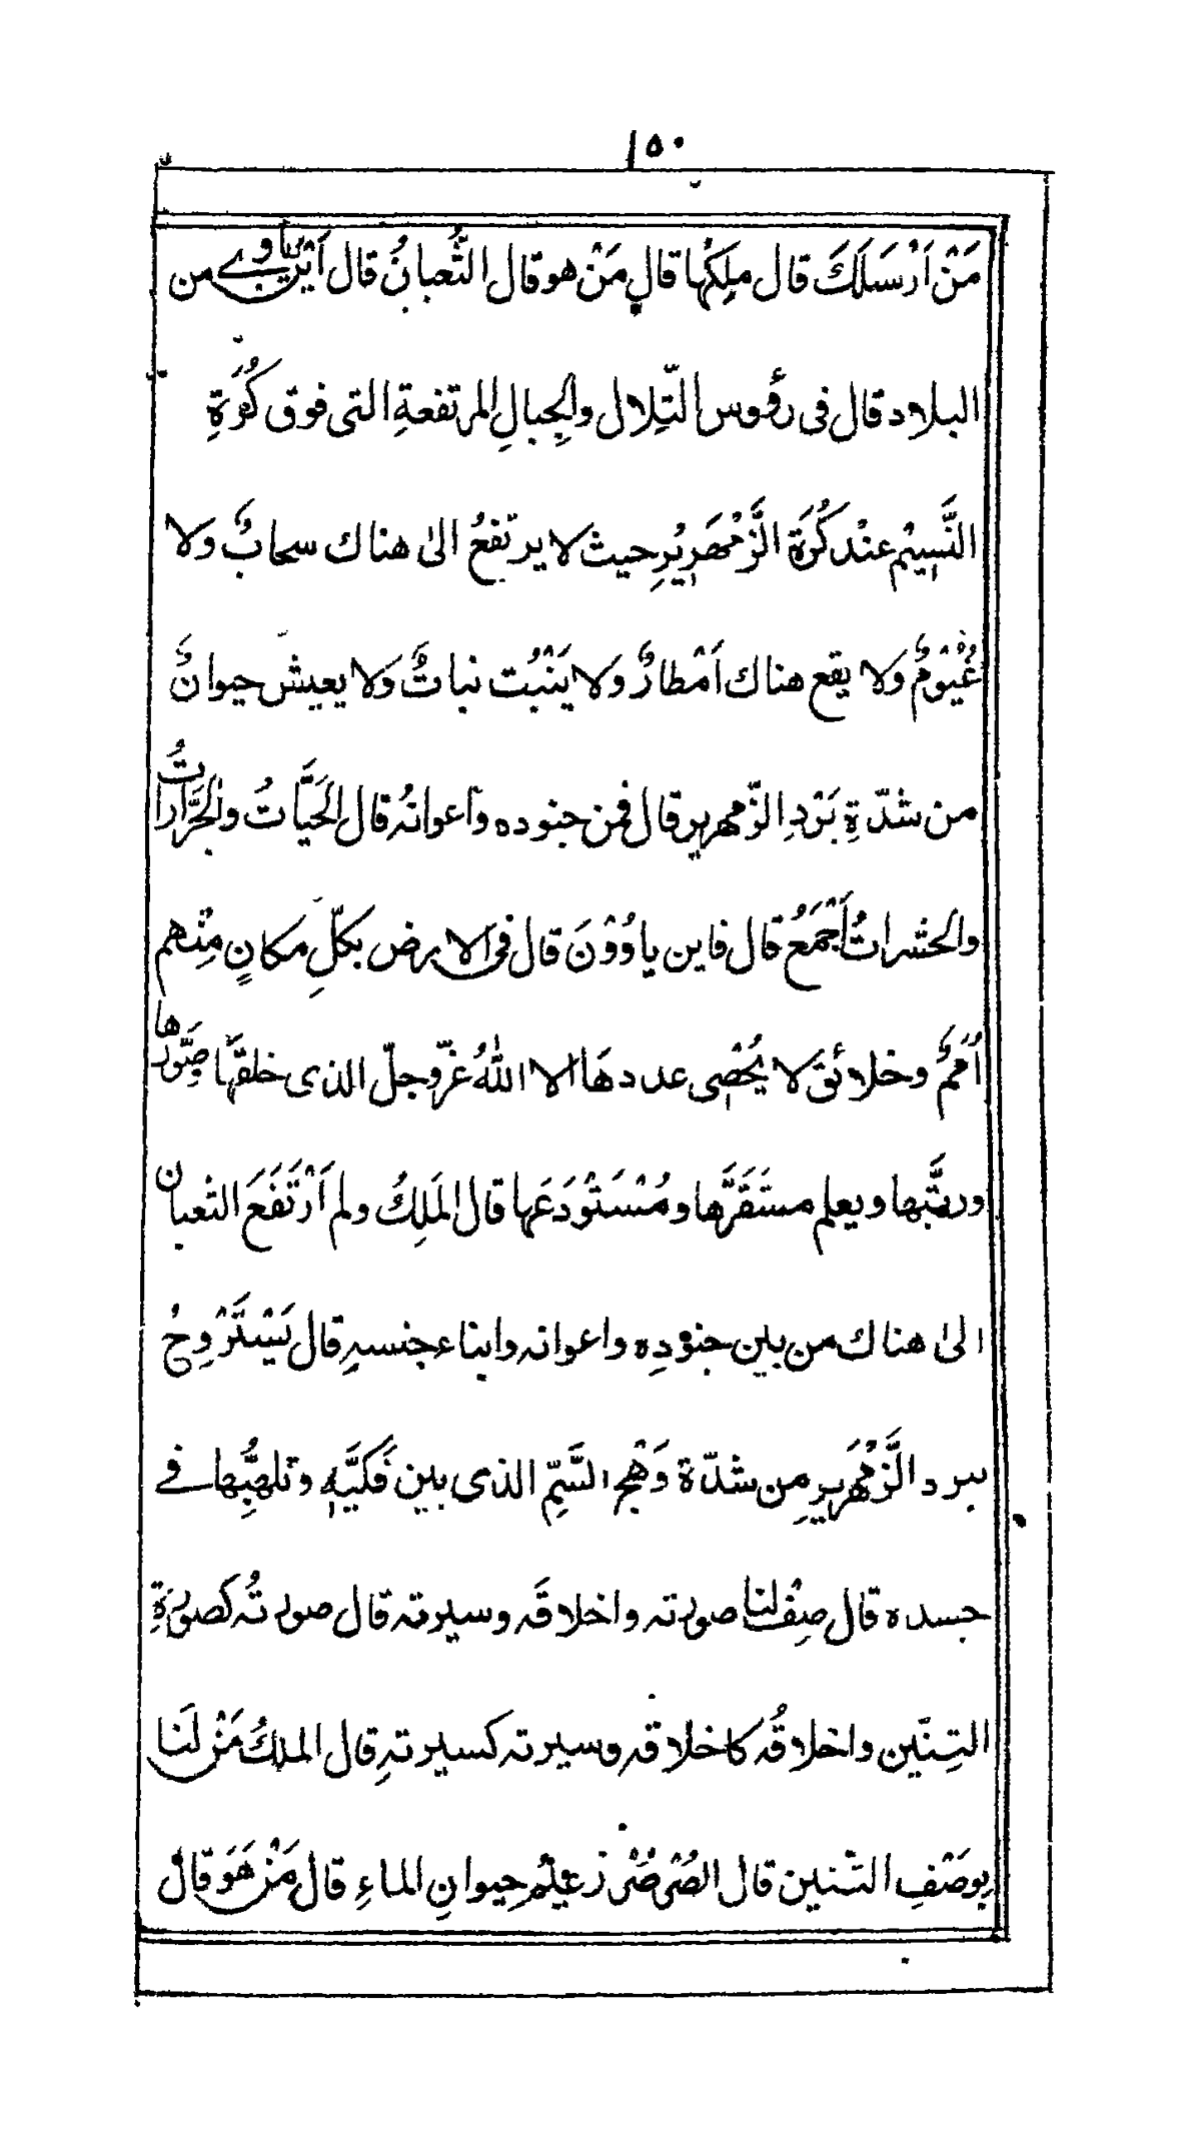 ١٥٠
مَنْ اَرْسَلَكَ قال ملِكُها قال مَنْ هو قال الثُّعبانُ قال اَيْنَ ياوى من
البلاد قال فى رؤوس التّلِال والجِبالِ المرتفعةِ التى فوق كُرَةِ
النَّسِيْم عنْد كُرَةِ الزَّمْهَرِيْرِ حيث لا يرتفعُ الىٰ هناك سحابٌ ولا
غُيُوْمٌ ولا يقع هناك اَمْطارٌ ولا يَنْبُت نباتٌ ولا يعيش حيوانٌ
من شدّةِ بَرْدِ الزّمهرير قال فمن جنوده واعوانهُ قال الحَيَّاتُ والجَرَّاراتُ
والحشراتُ اَجْمَعُ قال فاين ياوُوْنَ قال فى الارض بكلِّ مكانٍ مِنْهم
اُمَمٌ وخلائق لا يُحْصٰى عددهَا الا اللهُ عزّوجلّ الذى خلقَها وصَوَّرها
وربَّتها ويعلم مستَقَرَّها ومُسْتَوْدَعَها قال المَلِكُ ولم اَرْتَفَعَ الثعبان
الىٰ هناك من بين جنودِه واعوانه وابناء جنسهِ قال يَسْتَرْوِحُ
ببرد الزَّمْهَرِيرِ مِن شدّة وَهْجِ السَّمِّ الذى بين فَكَّيْهِ وتلهبُّها فے
جسده قال صِفْ لنا صورته واخلاقَه وسيرته قال صورتُه كصورَةِ
التِنّين واخلاقُه كاخلاقه وسيرته كسيرتهِ قال الملكُ مَنْ لَنا
بِوصَفِ التّنين قال الصُرْصُرْ زعيْم حيوانِ الماءِ قال مَنْ هَوَ قال